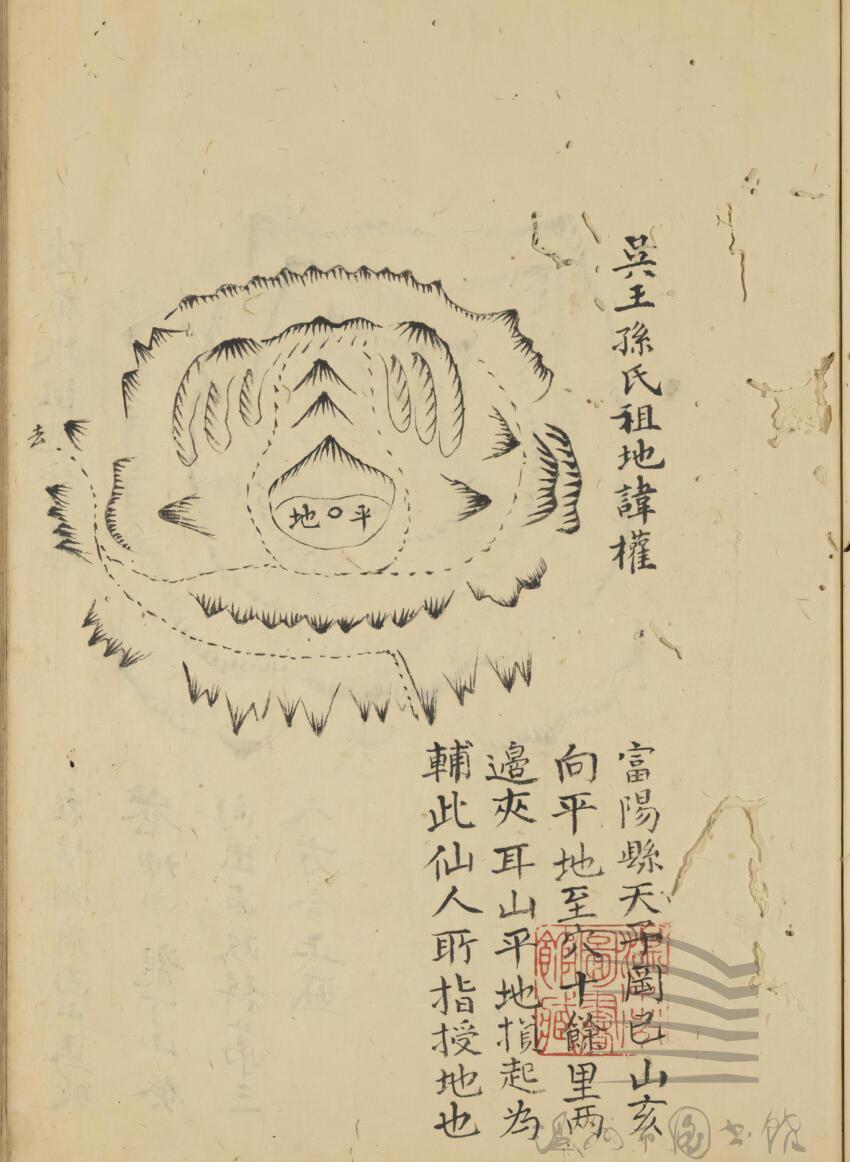 吳王孫氏祖地諱權
去
地 平
富陽縣天子岡巳山亥
向平地至穴十餘里兩
邊夾耳山平地攢起為
輔此仙人所指授地也
圖書館